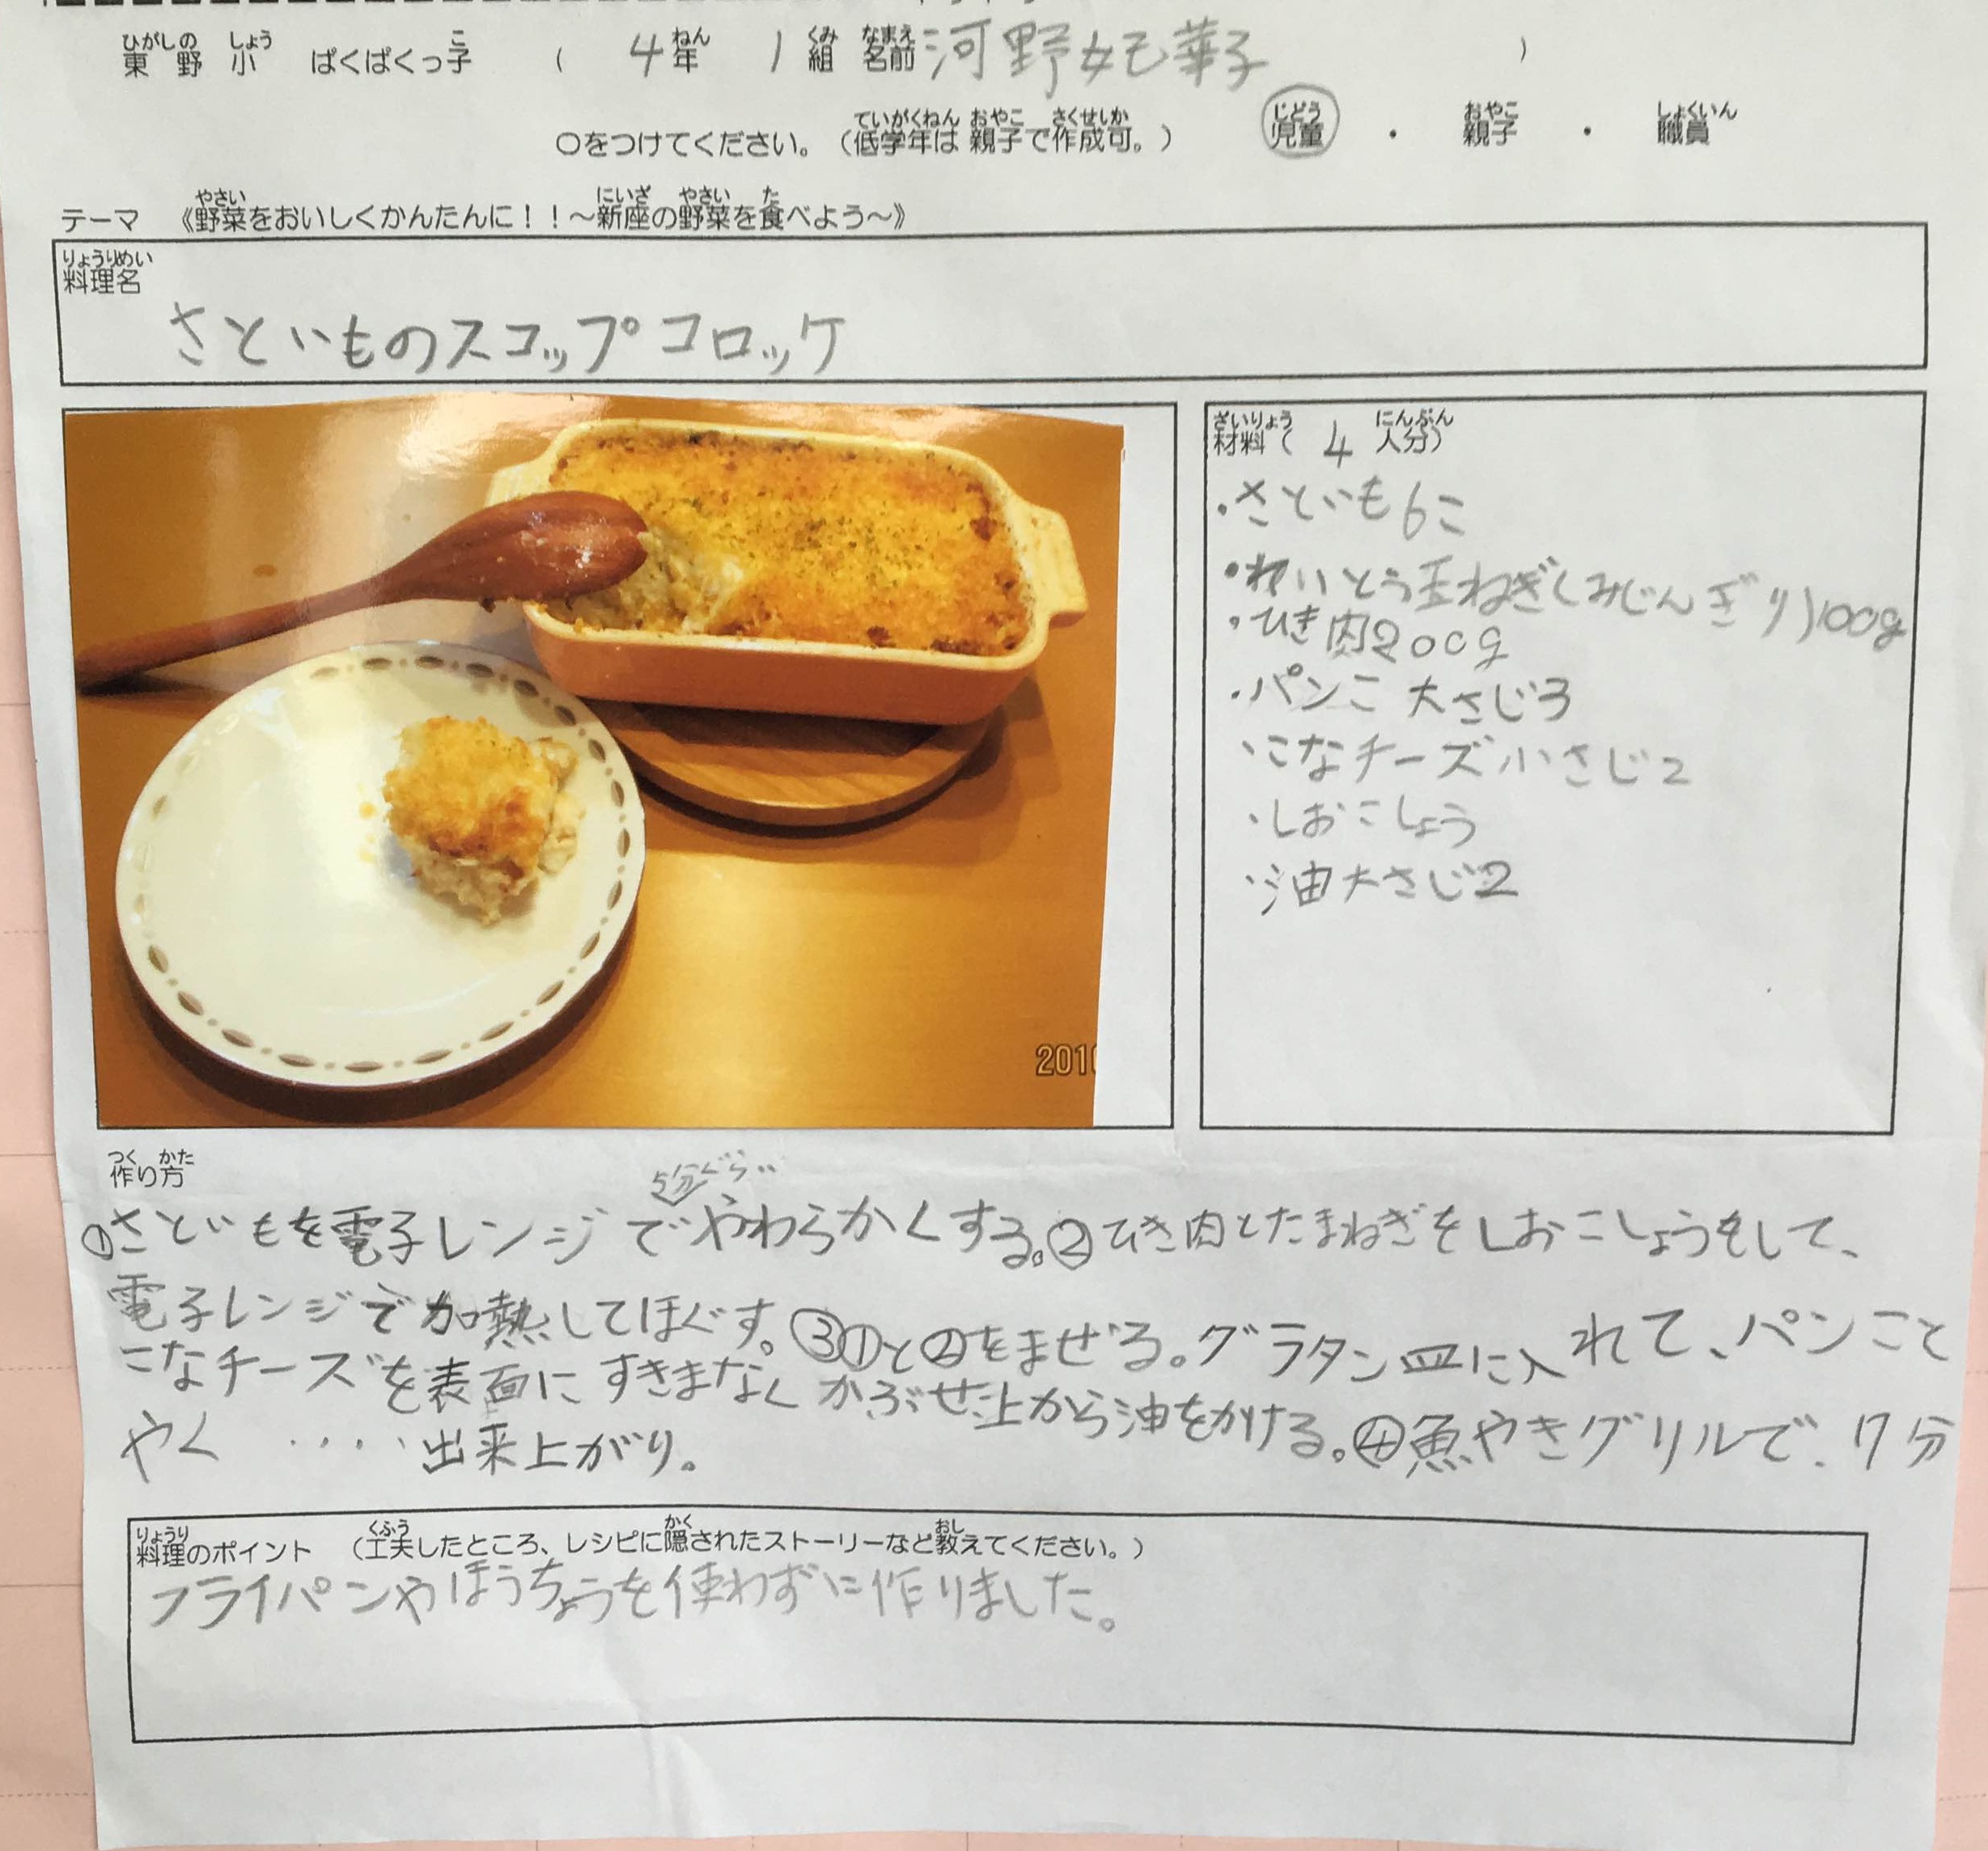 東野小 ぱくぱくっ子 ( 4年 1組 名前 河野妃華子 )
○をつけてください。(低学年は 親子で作成可。) 児童 ・ 親子 ・ 職員
テーマ 《野菜をおいしくかんたんに!!~新座の野菜を食べよう~》
料理名
さといものスコップコロッケ
材料( 4 人分)
・さといも6こ
・れいとう玉ねぎ(みじんぎり)100g
・ひき肉200g
・パンこ 大さじ3
・こなチーズ小さじ2
・しおこしょう
・油大さじ2
201
作り方
5分ぐらい
①さといもを電子レンジでやわらかくする。②ひき肉とたまねぎをしおこしょうをして、
電子レンジで加熱してほぐす。③①と②をまぜる。グラタン皿に入れて、パンこと
こなチーズを表面にすきまなくかぶせ上から油をかける。④魚やきグリルで、7分
やく ‥‥出来上がり。
料理のポイント (工夫したところ、レシピに隠されたストーリーなど教えてください。)
フライパンやほうちょうを使わずに作りました。